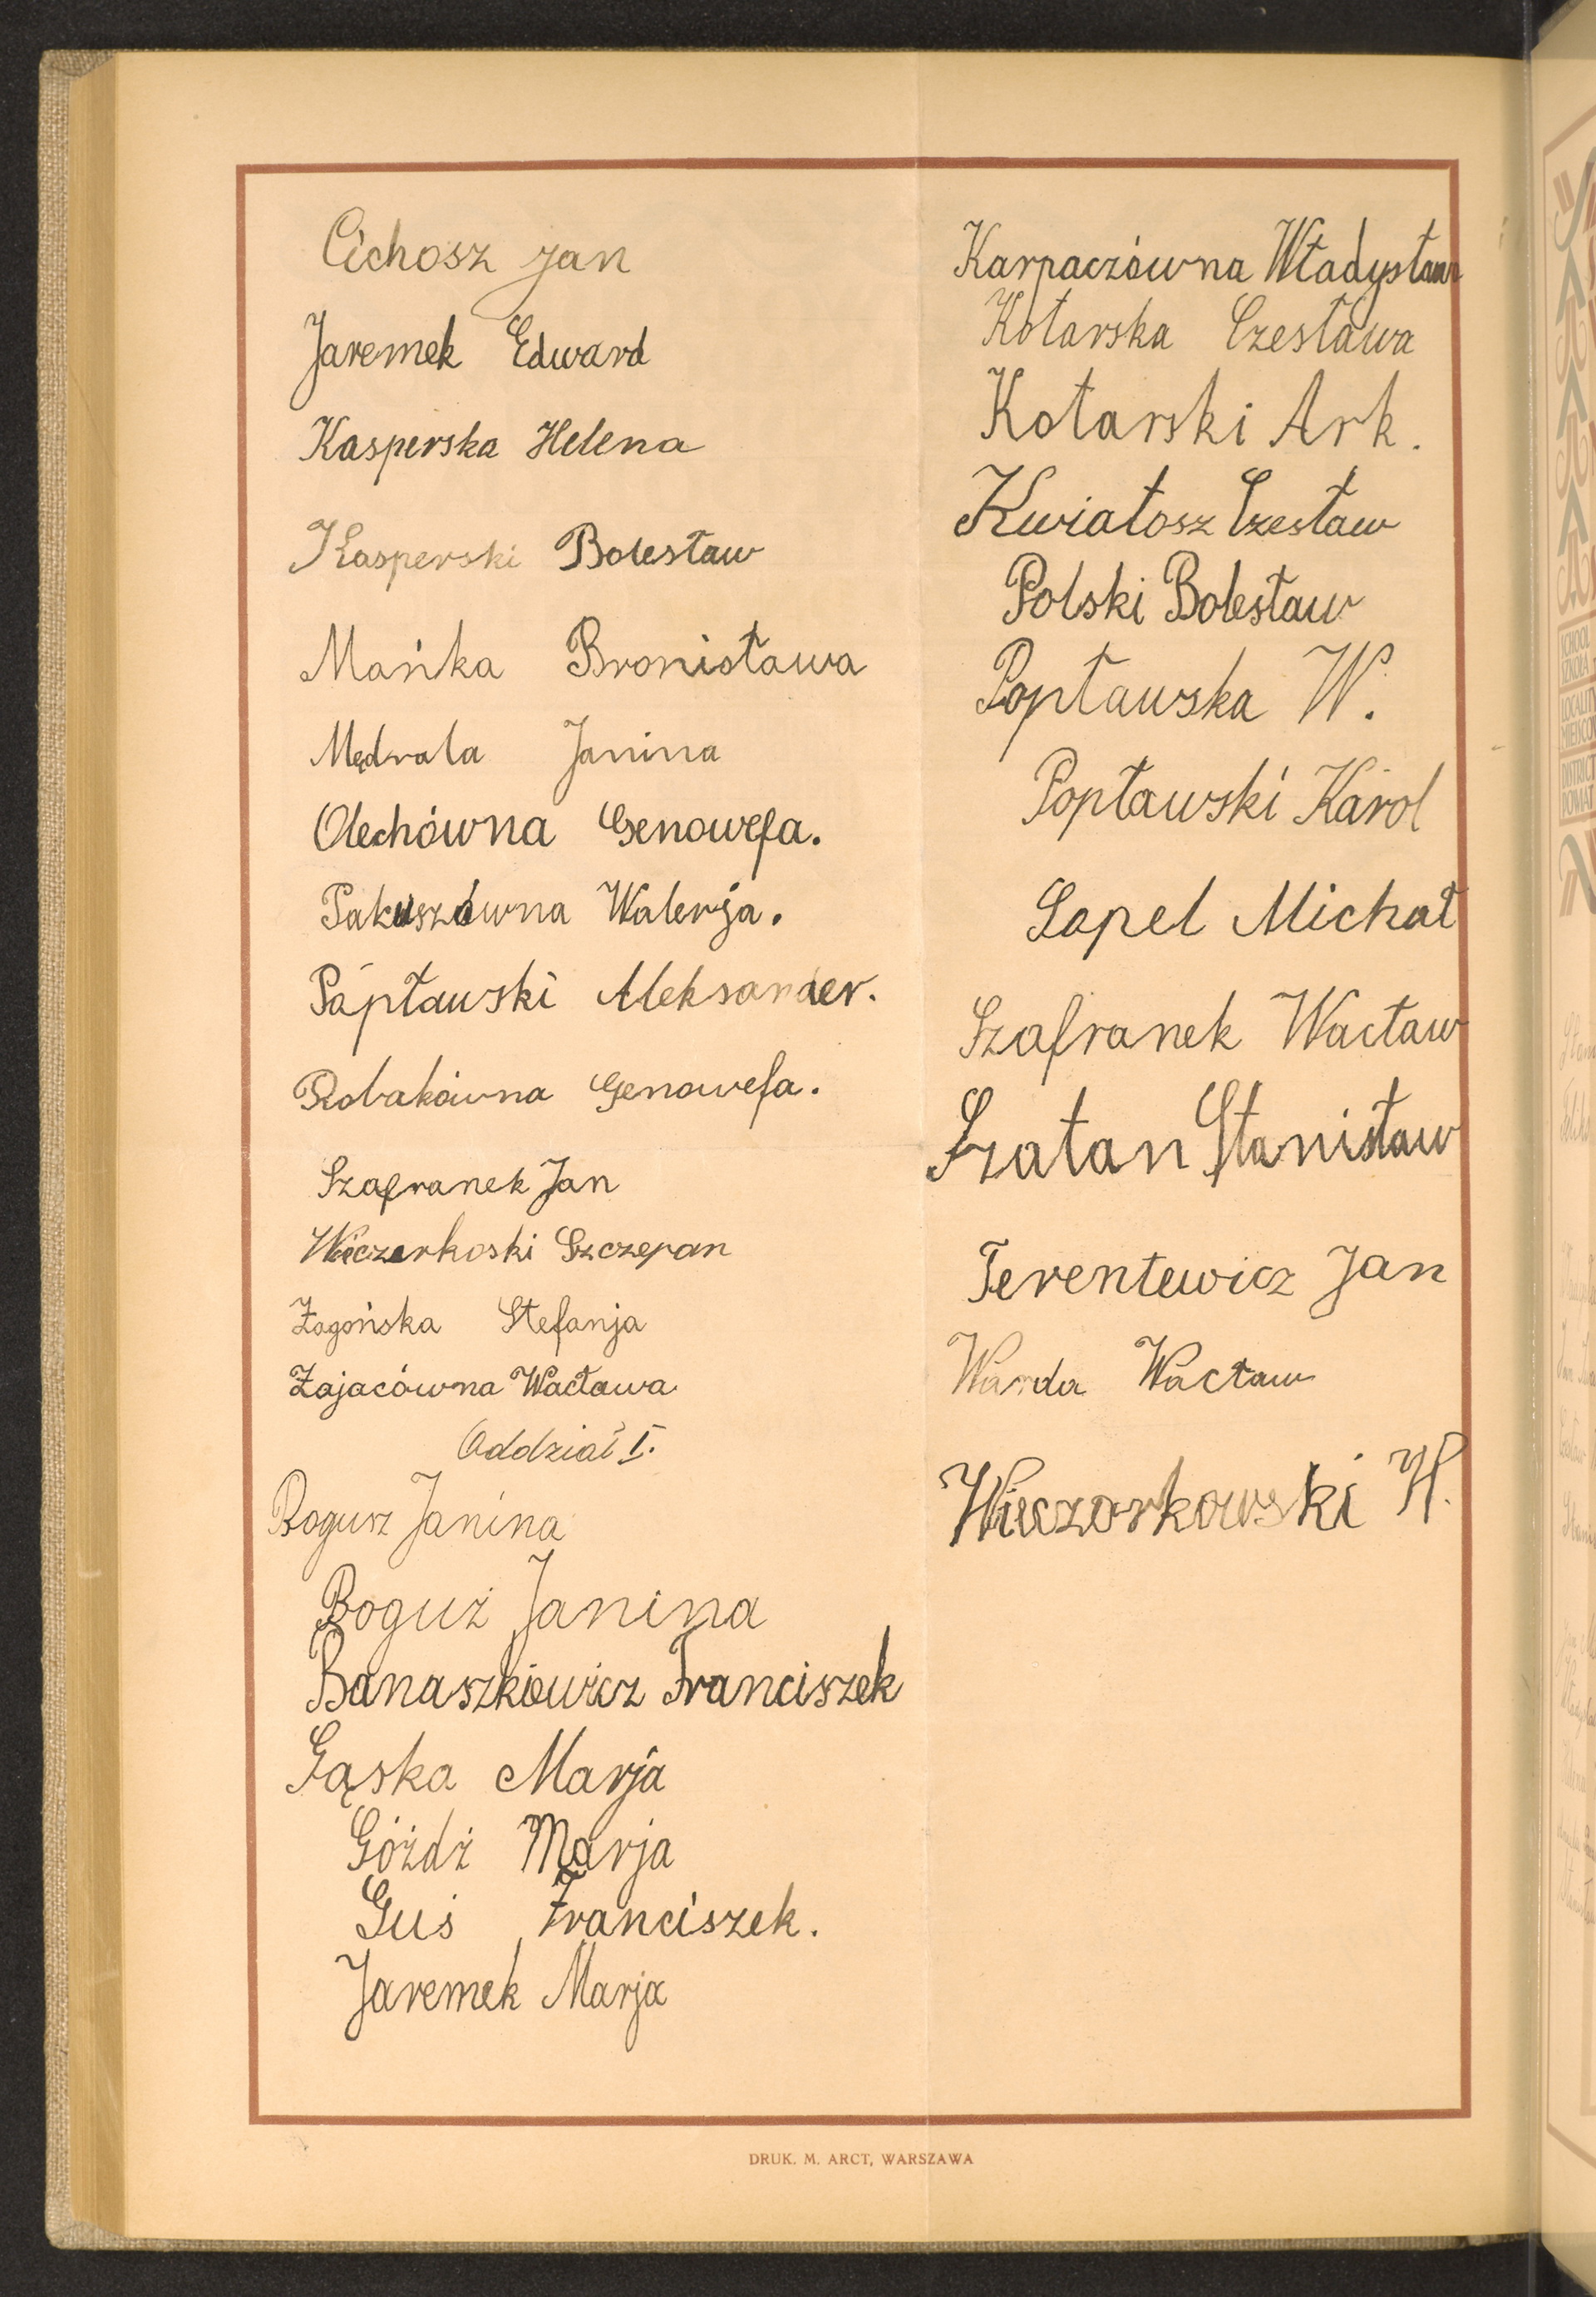 Cichosz Jan
Jaremek Edward
Kasperska Helena
Kasperski Bolesław
Mańka Bronisława
Mędrala Janina
Olechówna Genowefa.
Pakuszówna Walerja.
Papławski Aleksander.
Robakówna Genowefa.
Szafranek Jan
Wieczerkoski Szczepan
Żagońska Stefanja
Zajacówna Wacława
Oddział I.
Bogusz Janina
Boguż Janina
Banaszkiewicz Franciszek
Gąska Marja
Góżdż Marja
Guś Franciszek.
Jaremek Marja
Karpaczówna Władysława
Kotarska Czesława
Kotarski Ark.
Kwiatosz Czesław
Polski Bolesław
Popławska W.
Popławski Karol
Sapel Michał
Szafranek Wacław
Szatan Stanisław
Terentewicz Jan
Warda Wacław
Wieczorkowski H.
DRUK. M. ARCT, WARSZAWA
SCHOOL
SZKOŁA